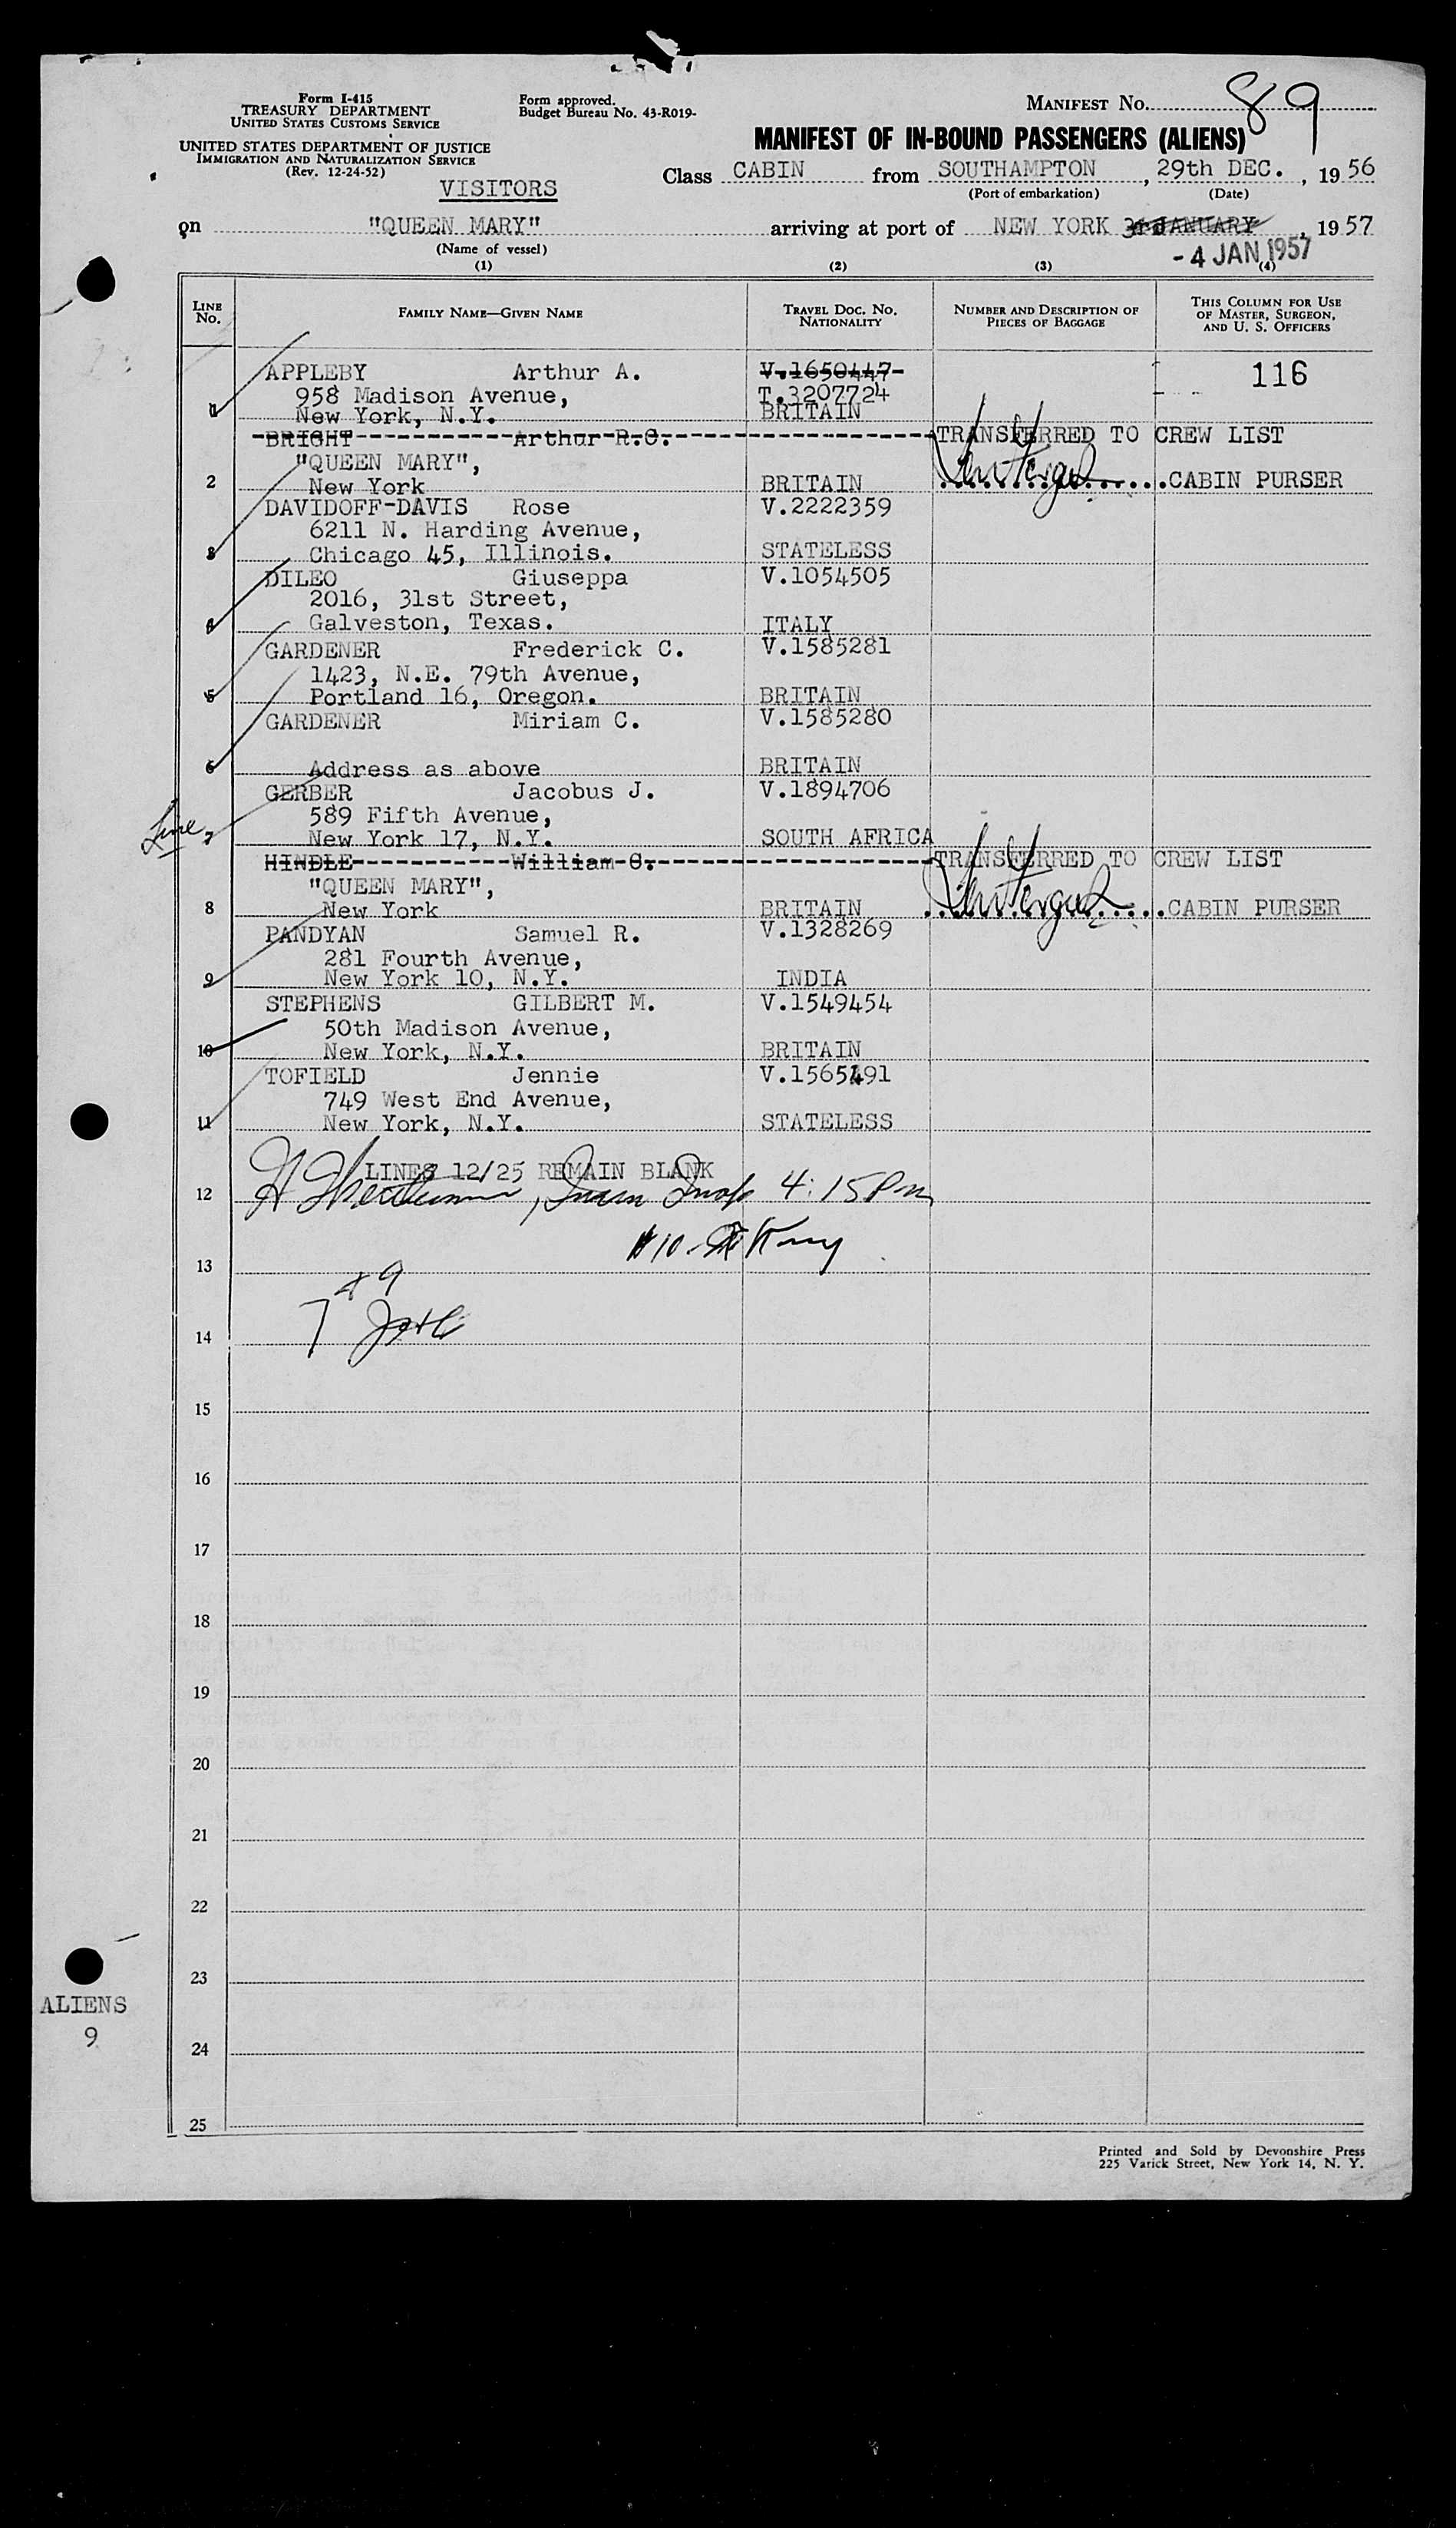 Form I-415
TREASURY DEPARTMENT
UNITED STATES CUSTOMS SERVICE
UNITED STATES DEPARTMENT OF JUSTICE
IMMIGRATION AND NATURALIZATION SERVICE
(Rev. 12-24-52)
Form approved.
Budget Bureau No. 43-R019-
MANIFEST No. 89
MANIFEST OF IN-BOUND PASSENGERS (ALIENS)
VISITORS
Class CABIN from SOUTHAMPTON, 29th DEC., 1956
(Port of embarkation) (Date)
on "QUEEN MARY" arriving at port of NEW YORK JANUARY, 1957
(Name of vessel)
- 4 JAN 1957
(1) (2) (3) (4)
LINE No. FAMILY NAME—GIVEN NAME TRAVEL DOC. NO. NATIONALITY NUMBER AND DESCRIPTION OF PIECES OF BAGGAGE THIS COLUMN FOR USE OF MASTER, SURGEON, AND U. S. OFFICERS
APPLEBY Arthur A. V.1650447 116
958 Madison Avenue, T.3207724
1 New York, N.Y. BRITAIN
BRIGHT Arthur R.C. TRANSFERRED TO CREW LIST
"QUEEN MARY",
2 New York BRITAIN CABIN PURSER
DAVIDOFF-DAVIS Rose V.2222359
6211 N. Harding Avenue,
3 Chicago 45, Illinois. STATELESS
DILEO Giuseppa V.1054505
2016, 31st Street,
4 Galveston, Texas. ITALY
GARDENER Frederick C. V.1585281
1423, N.E. 79th Avenue,
5 Portland 16, Oregon. BRITAIN
GARDENER Miriam C. V.1585280
6 Address as above BRITAIN
GERBER Jacobus J. V.1894706
589 Fifth Avenue,
Line 7 New York 17, N.Y. SOUTH AFRICA
HINDLE William C. TRANSFERRED TO CREW LIST
"QUEEN MARY",
8 New York BRITAIN CABIN PURSER
PANDYAN Samuel R. V.1328269
281 Fourth Avenue,
9 New York 10, N.Y. INDIA
STEPHENS GILBERT M. V.1549454
50th Madison Avenue,
10 New York, N.Y. BRITAIN
TOFIELD Jennie V.1565491
749 West End Avenue,
11 New York, N.Y. STATELESS
LINES 12/25 REMAIN BLANK
12 4:15 PM
#10
13
9
7
14
15
16
17
18
19
20
21
22
23
24
25
ALIENS
9
Printed and Sold by Devonshire Press
225 Varick Street, New York 14, N. Y.